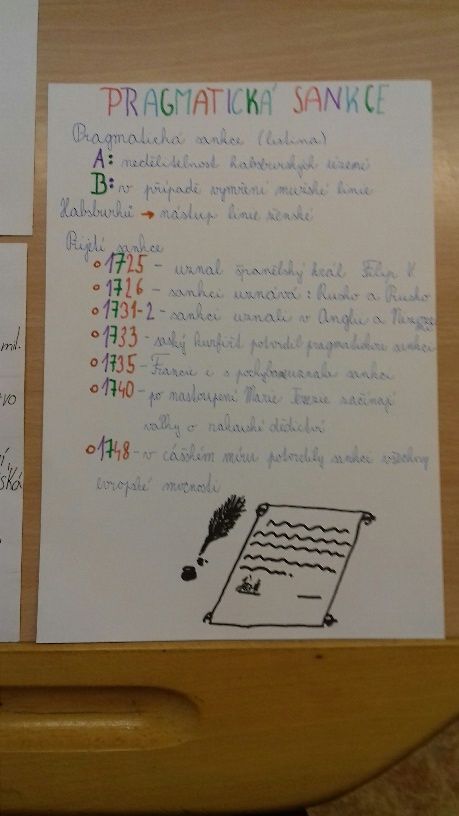 PRAGMATICKÁ SANKCE
Pragmatická sankce (listina)
A: nedělitelnost habsburských území
B: v případě vymření mužské linie
Habsburků → nástup linie ženské
Přijetí sankce
1725 - uznal španělský král Filip V.
1726 - sankci uznává: Rusko a Prusko
1731-2 - sankci uznali v Anglii a
1733 - saský kurfiřt potvrdil pragmatickou sankci
1735 - Francie i s pochybami uznala sankci
1740 - po nastoupení Marie Terezie začínají
války o rakouské dědictví
1748 - v cášském míru potvrdily sankci všechny
evropské mocnosti
mil.
vo
ská